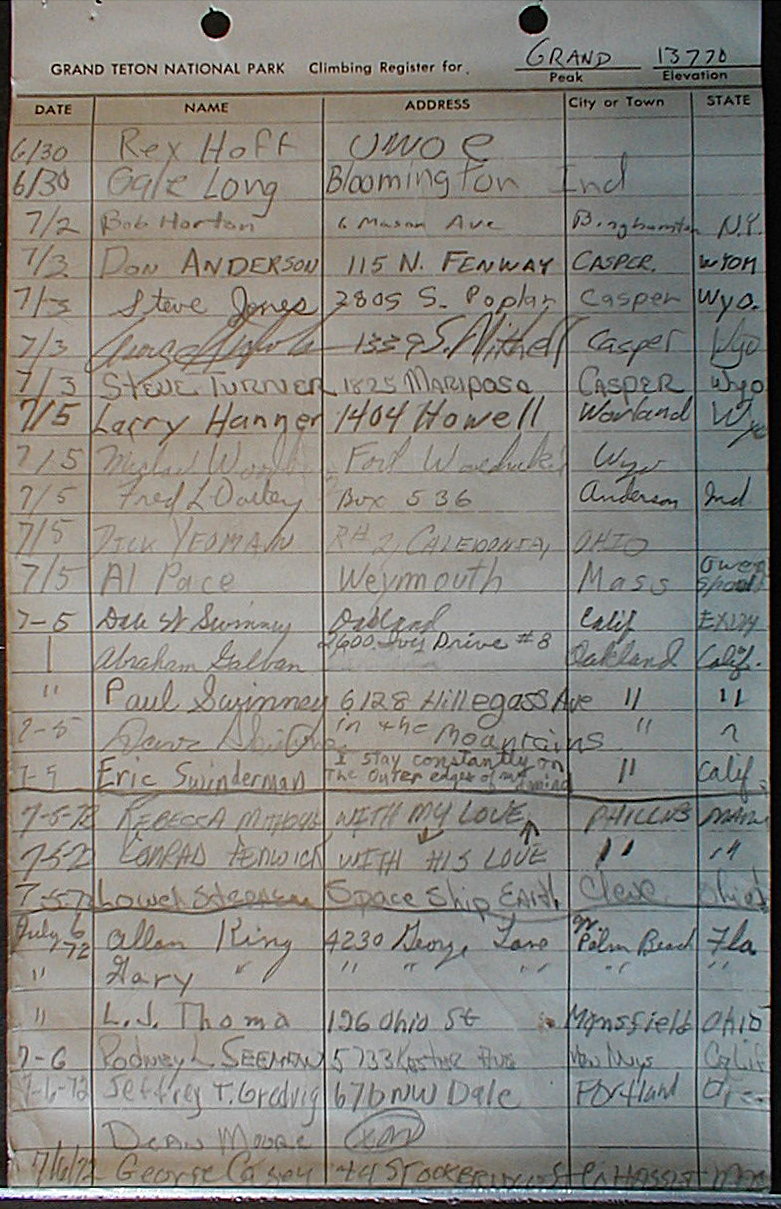 GRAND TETON NATIONAL PARK Climbing Register for GRAND 13770
Peak Elevation
DATE NAME ADDRESS City or Town STATE
6/30 Rex Hoff UWO
6/30 Gale Long Bloomington Ind
7/2 Bob Horton 6 Mason Ave Binghamton N.Y.
7/3 DON ANDERSON 115 N. FENWAY CASPER. WYOM
7/3 Steve Jones 2805 S. Poplar Casper Wyo.
7/3 1339 S. Mitchell Casper Wyo
7/3 STEVE TURNER 1825 MARIPOSA CASPER Wyo
7/5 Larry Hanner 1404 Howell Worland Wyo
7/5 Michael Fort Wyo
7/5 Fred L Box 536 Anderson Ind
7/5 DICK YEOMAN 2, CALEDONIA, OHIO
7/5 Al Pace Weymouth Mass Owen Spaulding
7-5 Dale W Swinney Oakland Calif
Abraham Galvan 2600 Ivy Drive #8 Oakland Calif.
" Paul Swinney 6128 Hillegass Ave " "
7-5 in the Mountains " "
7-5 Eric Swinderman I stay constantly on The Outer edges of my mind " Calif.
7-5-72 REBECCA WITH MY LOVE PHILLIPS MAINE
7-5-72 CONRAD FENWICK WITH HIS LOVE " "
7-5-72 Lowell Space Ship Earth Cleve. Ohio
July 6 '72 Allan King 4230 George Lane W Palm Beach Fla
" Gary " " " " " "
" L.J. Thoma 126 Ohio St Mansfield Ohio
7-6 Rodney L. SEEMAN 5733 Ave Van Nuys Calif
7-6-72 Jeffrey T. Gredvig 67b NW Dale Portland Ore.
DEAN MOORE
7/6/72 George Casey 44 Cohasset Mass